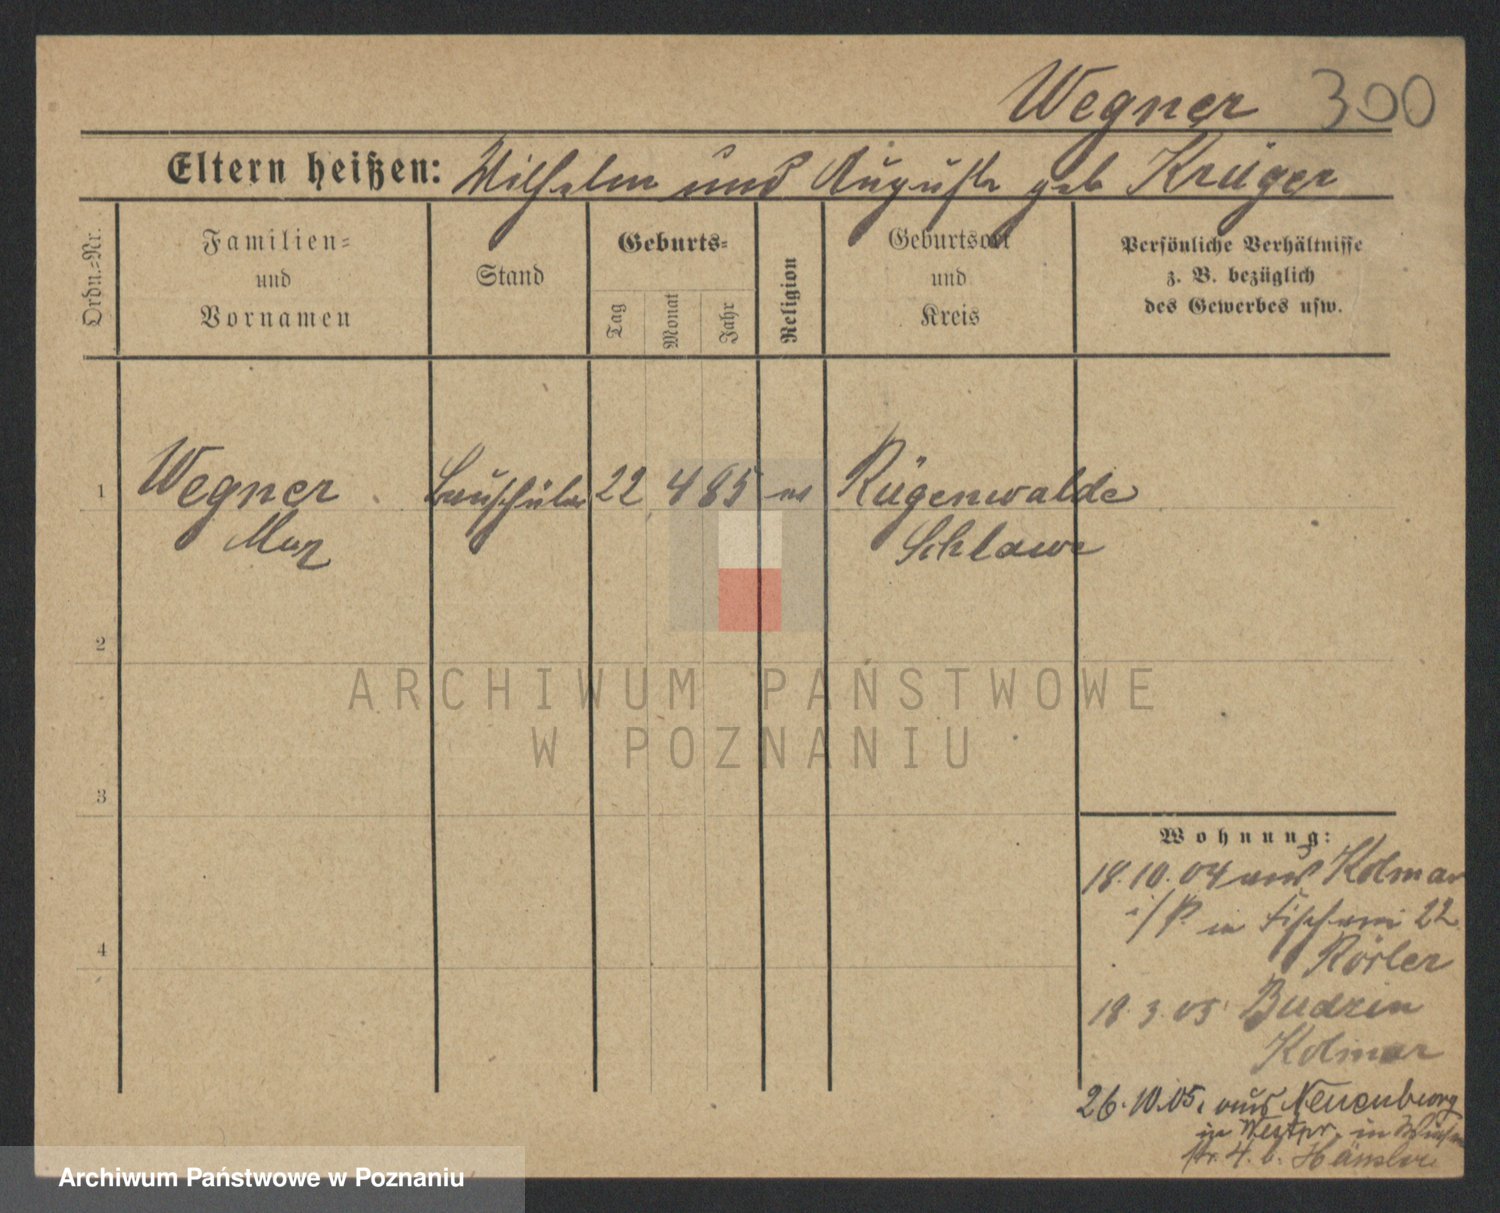 Wegner 300
Eltern heißen: Wilhelm und Auguste geb Krüger
Ordn.=Nr.
Familien=
und
Vornamen
Stand
Geburts=
Tag
Monat
Jahr
Religion
Geburtsort
und
Kreis
Persönliche Verhältnisse
z. B. bezüglich
des Gewerbes usw.
1 Wegner Bauschüler 22 4 85 ev Rügenwalde
Max Schlawe
2
ARCHIWUM PAŃSTWOWE
W POZNANIU
3
Wohnung:
18.10.04 aus Kolmar
i/P. in Fischerei 22
4
18.3.05 Budzin
Kolmar
26.10.05, aus Neuenburg
in Westpr. in
str. 4. b.
Archiwum Państwowe w Poznaniu